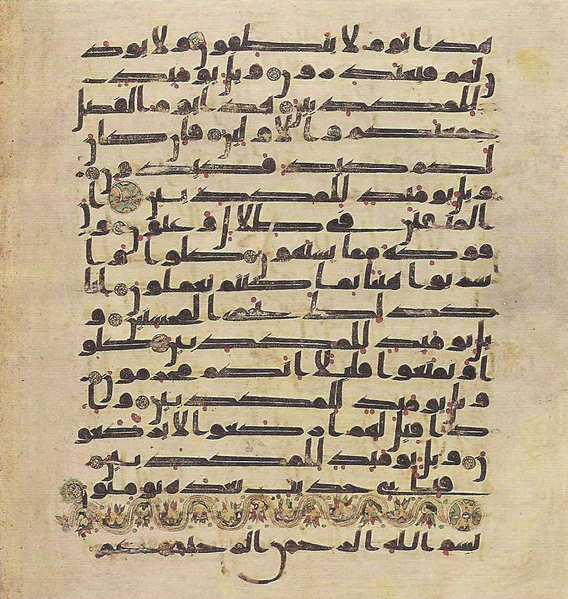 هذا يوم لا ينطقون ولا يوذن
لهم فيعتذرون ويل يومئذ
للمكذبين هذا يوم الفصل
جمعنكم والاولين فان كان
لكم كيد فكيدون
ويل يومئذ للمكذبين ان
المتقين في ظلل وعيون و
فوكه مما يشتهون كلوا وا
شربوا هنيا بما كنتم تعملون انا
كذلك نجزي المحسنين و
يل يومئذ للمكذبين كلو
ا وتمتعوا قليلا انكم مجرمون
ويل يومئذ للمكذبين واذ
ا قيل لهم اركعوا لا يركعو
ن ويل يومئذ للمكذبين
فباي حديث بعده يومنون
بسم الله الرحمن الرحيم